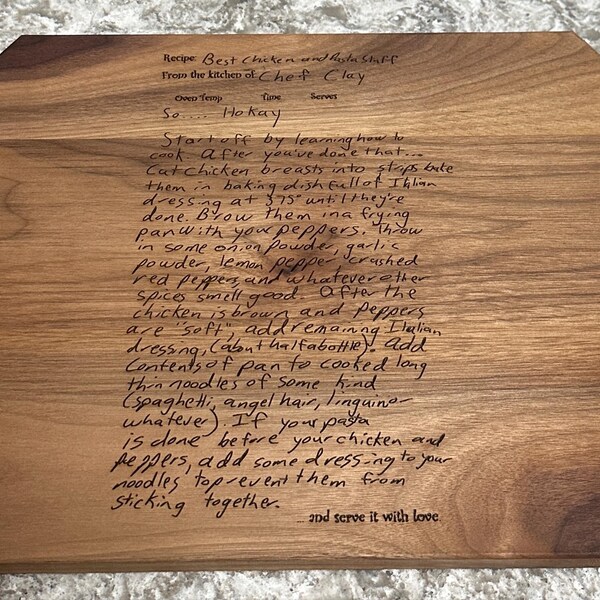 Recipe: Best Chicken and Pasta Stuff
From the kitchen of: Chef Clay
Oven Temp Time Serves
So.... Hokay
Start off by learning how to
cook. After you've done that...
Cut chicken breasts into strips bake
them in baking dish full of Italian
dressing at 375° until they're
done. Brow them in a frying
pan with your peppers. Throw
in some onion powder, garlic
powder, lemon pepper, crashed
red peppers, and whatever other
spices smell good. After the
chicken is brown and peppers
are "soft", add remaining Italian
dressing, (about half a bottle). Add
contents of pan to cooked long
thin noodles of some kind
(spaghetti, angel hair, linguin or
whatever). If your pasta
is done before your chicken and
peppers, add some dressing to your
noodles to prevent them from
sticking together.
... and serve it with love